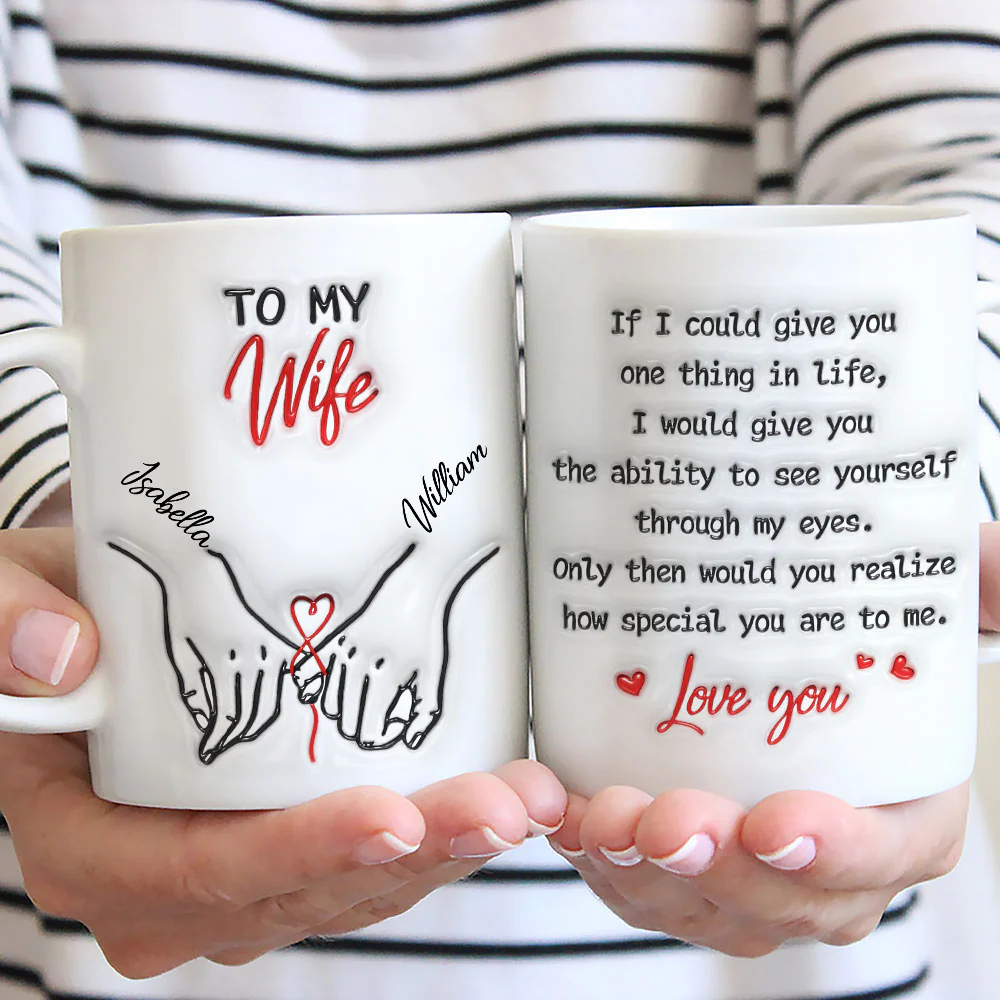 TO MY
Wife
Isabella
William
If I could give you
one thing in life,
I would give you
the ability to see yourself
through my eyes.
Only then would you realize
how special you are to me.
Love you